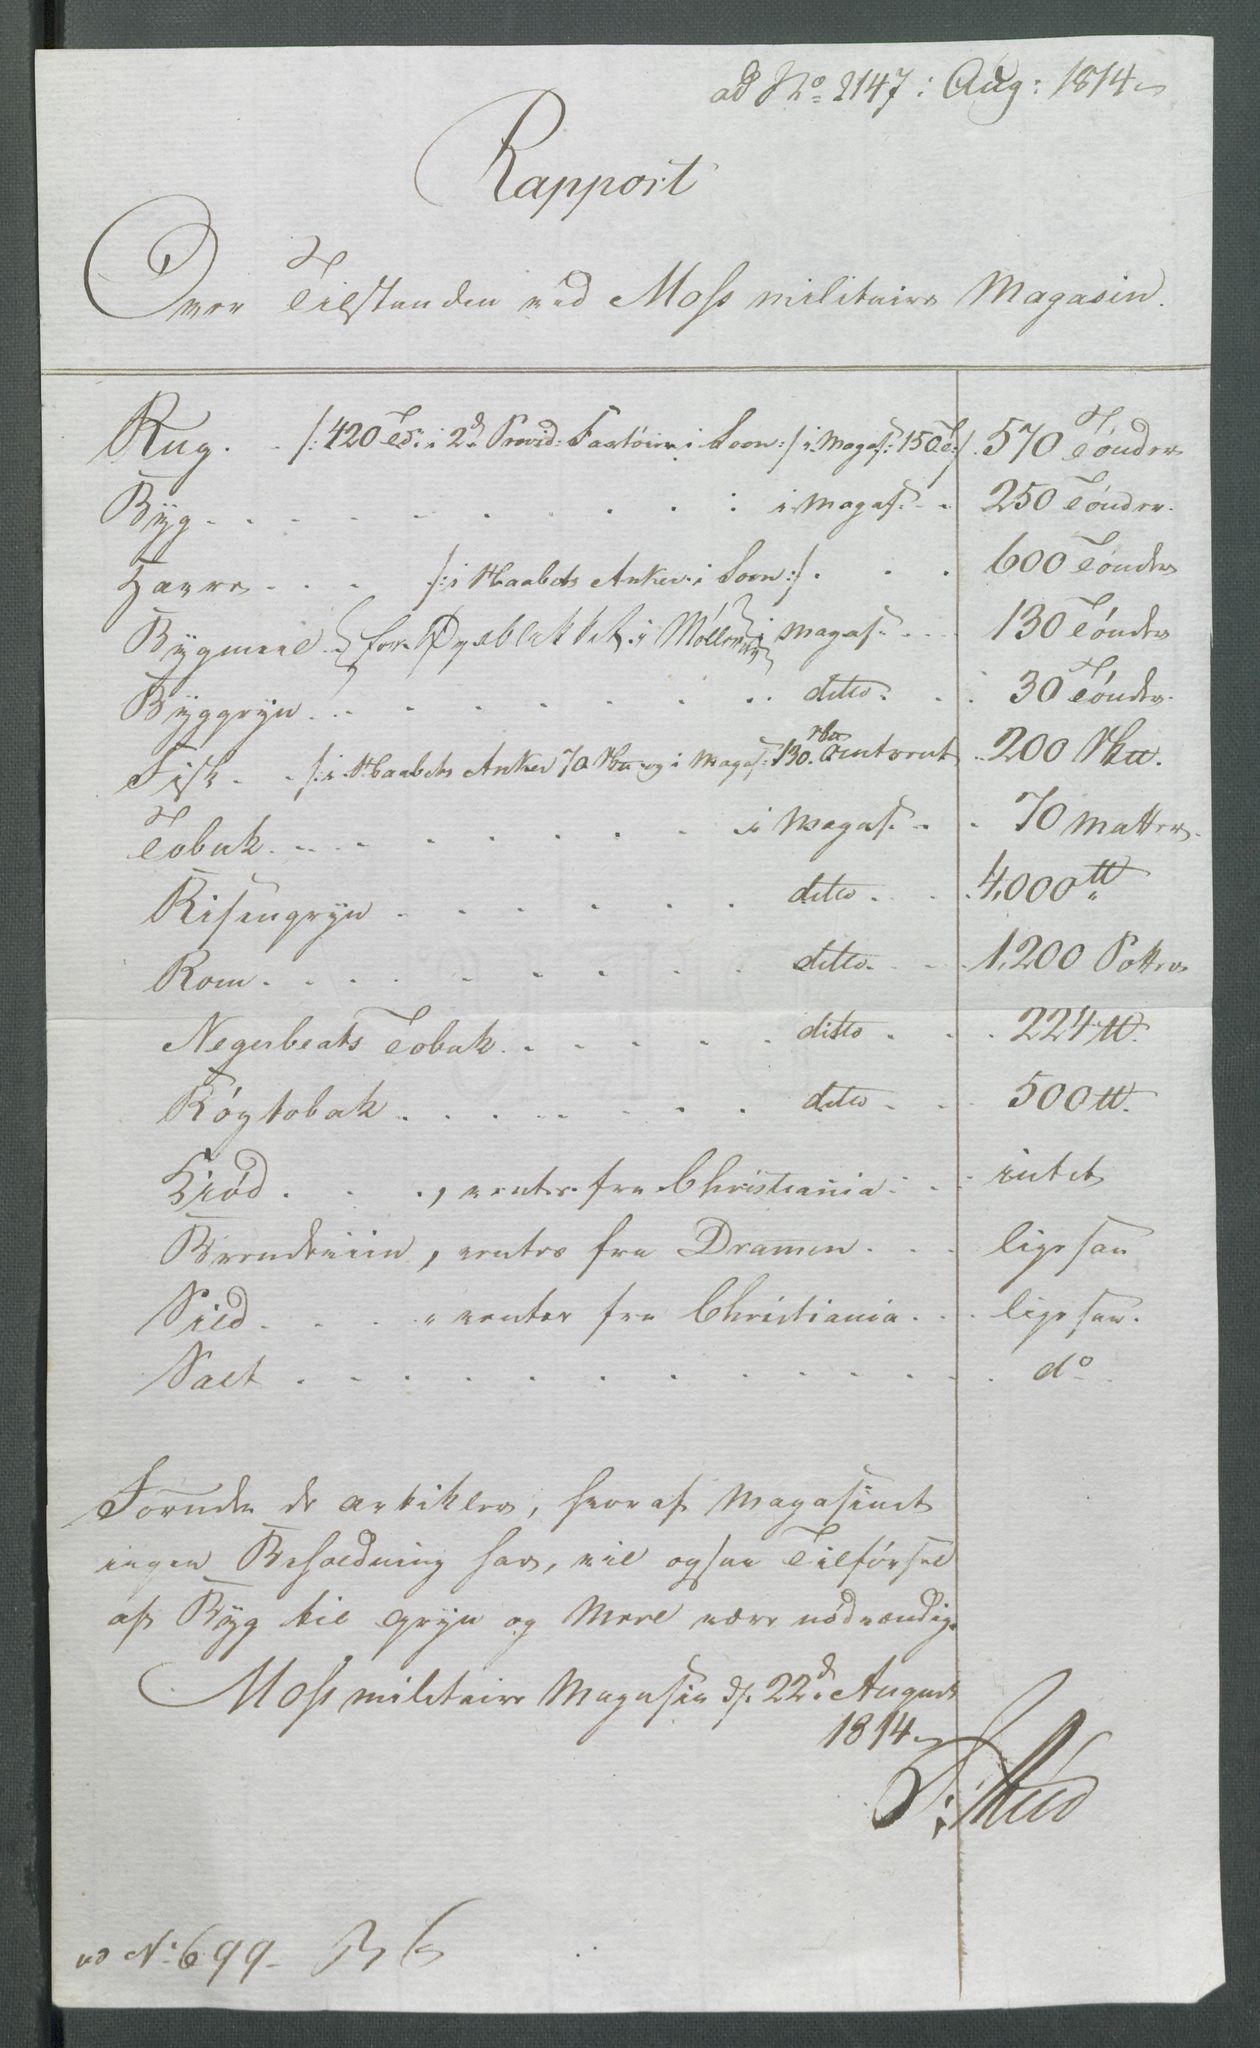 ad No 2147: Aug: 1814
Rapport
Over Tilstanden ved Moss militaire Magasin.
Rug. . /: 420 Tdr i 2de Provid: Fartöier i Soon :/ i Magas: 150 T: /. 570 Tönder
Byg . . . . i Magas: . . 250 Tönder.
Havre . . . /: i Haabets Anker i Soon :/ . . . 600 Tönder
Bygmeel i Möllen i Magas: . . . 130 Tönder
Byggryn . . . . ditto . . . 30 Tönder.
Fisk . . /: i Haabets Anker 70 og i Magas: 130. omtrent . 200
Tobak . . . . i Magas: . . 70 Matter.
Risengryn . . . . ditto . . . 4,000 ℔
Rom . . . . ditto . . . 1,200 Potter
Negerbeats Tobak . . . . ditto . . . 224 ℔.
Rögtobak . . . . ditto . . . 500 ℔.
Kiöd . . . , ventes fra Christiania . . . intet
Brendeviin , ventes fra Dramen . . . ligesaa
Sild . . . " ventes fra Christiania . . . ligesaa.
Salt . . . . do
Foruden de Artikler, hvoraf Magasinet
ingen Beholdning har, vil ogsaa Tilförsel
af Byg til Gryn og Meel være nödvændig.
Moss militaire Magasin d: 22de August
1814
ad No 699